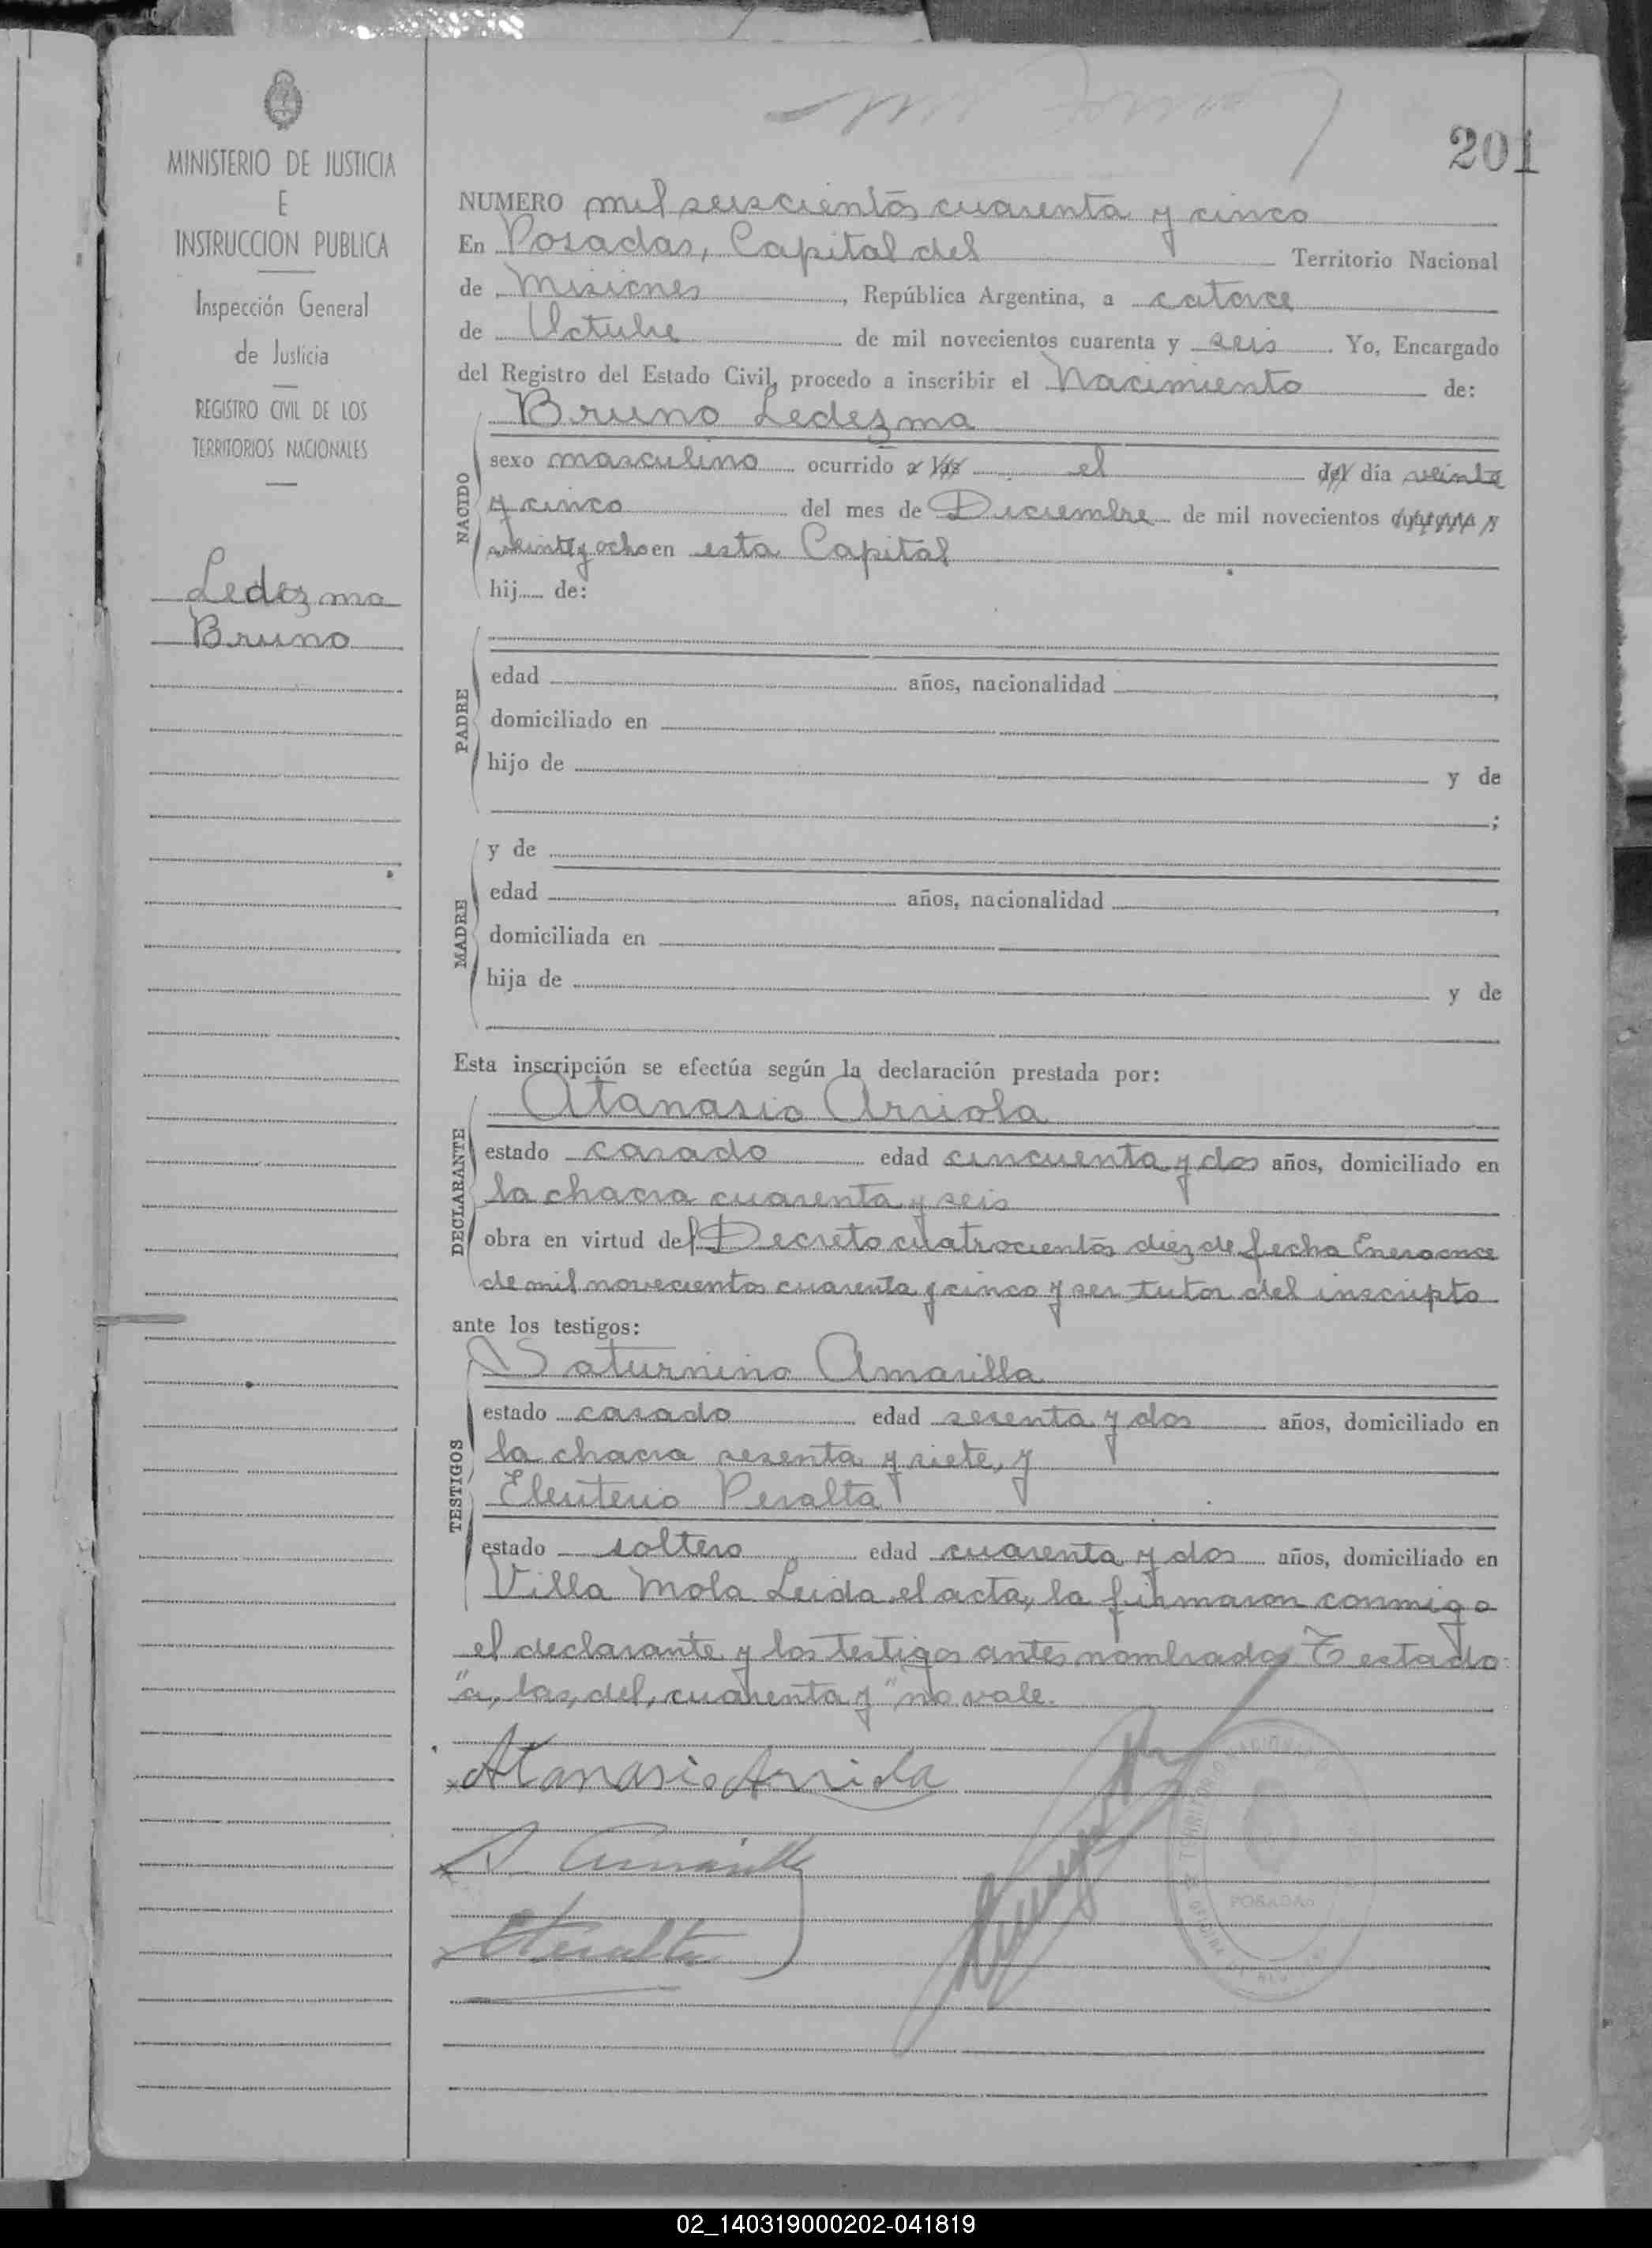 201
MINISTERIO DE JUSTICIA
E
INSTRUCCION PUBLICA
Inspección General
de Justicia
REGISTRO CIVIL DE LOS
TERRITORIOS NACIONALES
Ledezma
Bruno
NUMERO mil seiscientos cuarenta y cinco
En Posadas, Capital del Territorio Nacional
de Misiones, República Argentina, a catorce
de Octubre de mil novecientos cuarenta y seis. Yo, Encargado
del Registro del Estado Civil, procedo a inscribir el Nacimiento de:
NACIDO
Bruno Ledezma
sexo masculino ocurrido a las el del día veinte
y cinco del mes de Diciembre de mil novecientos cuarenta y
veinte y ocho en esta Capital
hij...... de:
PADRE
edad años, nacionalidad ,
domiciliado en
hijo de y de
;
MADRE
y de
edad años, nacionalidad ,
domiciliada en
hija de y de
Esta inscripción se efectúa según la declaración prestada por:
DECLARANTE
Atanasio Arriola
estado casado edad cincuenta y dos años, domiciliado en
la chacra cuarenta y seis
obra en virtud del Decreto cuatrocientos diez de fecha Enero once
de mil novecientos cuarenta y cinco y ser tutor del inscripto
ante los testigos:
TESTIGOS
Saturnino Amarilla
estado casado edad sesenta y dos años, domiciliado en
la chacra sesenta y siete, y
Eleuterio Peralta
estado soltero edad cuarenta y dos años, domiciliado en
Villa Mola Leida el acta, la firmaron conmigo
el declarante y los testigos antes nombrados Testado:
"a, las, del, cuarenta y" no vale.
Atanasio Arriola
S. Amarilla
E Peralta
POSADAS
02_140319000202-041819